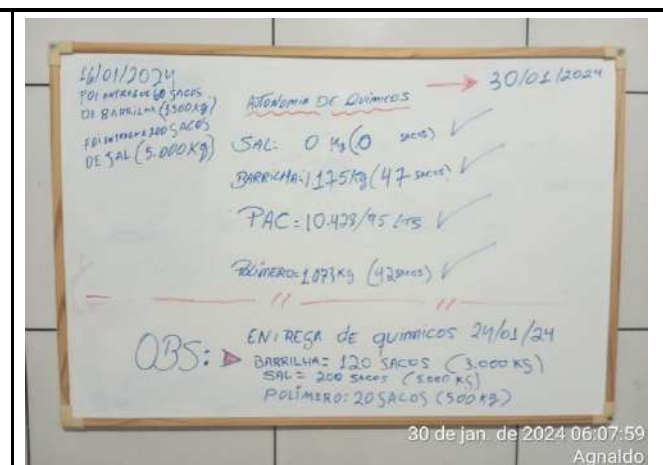 16/01/2024
FOI ENTREGUE 60 SACOS
DE BARRILHA (1.500 Kg)
FOI ENTREGUE 200 SACOS
DE SAL (5.000Kg)
AUTONOMIA DE QUÍMICOS → 30/01/2024
SAL: 0 Kg (0 SACOS)
BARRICHA: 1.175 Kg (47 SACOS)
PAC = 10.428/95 LTS
POLÍMERO: 1.073 Kg (42 SACOS)
OBS: ENTREGA de quimicos 24/01/24
BARRILHA = 120 SACOS (3.000 KG)
SAL = 200 SACOS (5.000 KG)
POLÍMERO: 20 SACOS (500 Kg)
30 de jan. de 2024 06:07:59
Agnaldo